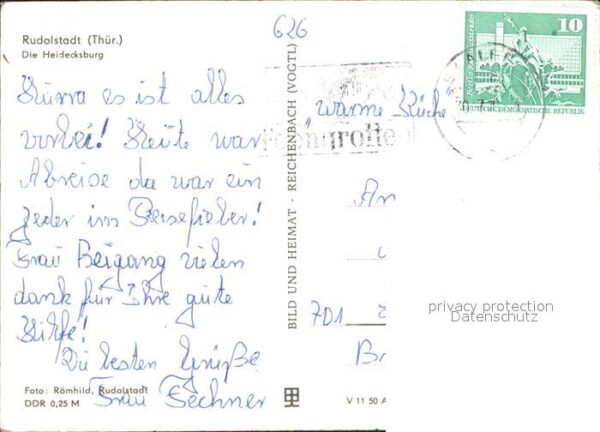 626
Rudolstadt (Thür.)
Die Heidecksburg
Hurra es ist alles
vorbei! Heute war
Abreise da war ein
jeder im Reisefieber!
Frau Beigang vielen
dank für Ihre gute
Hilfe!
Die besten Grüße
Frau Fechner
Foto: Römhild, Rudolstadt
DDR 0,25 M
BILD UND HEIMAT · REICHENBACH (VOGTL)
V 11 50 A
10
Berlin
DEUTSCHE DEMOKRATISCHE REPUBLIK
"warme Küche
engrotte
An
701
privacy protection
Datenschutz